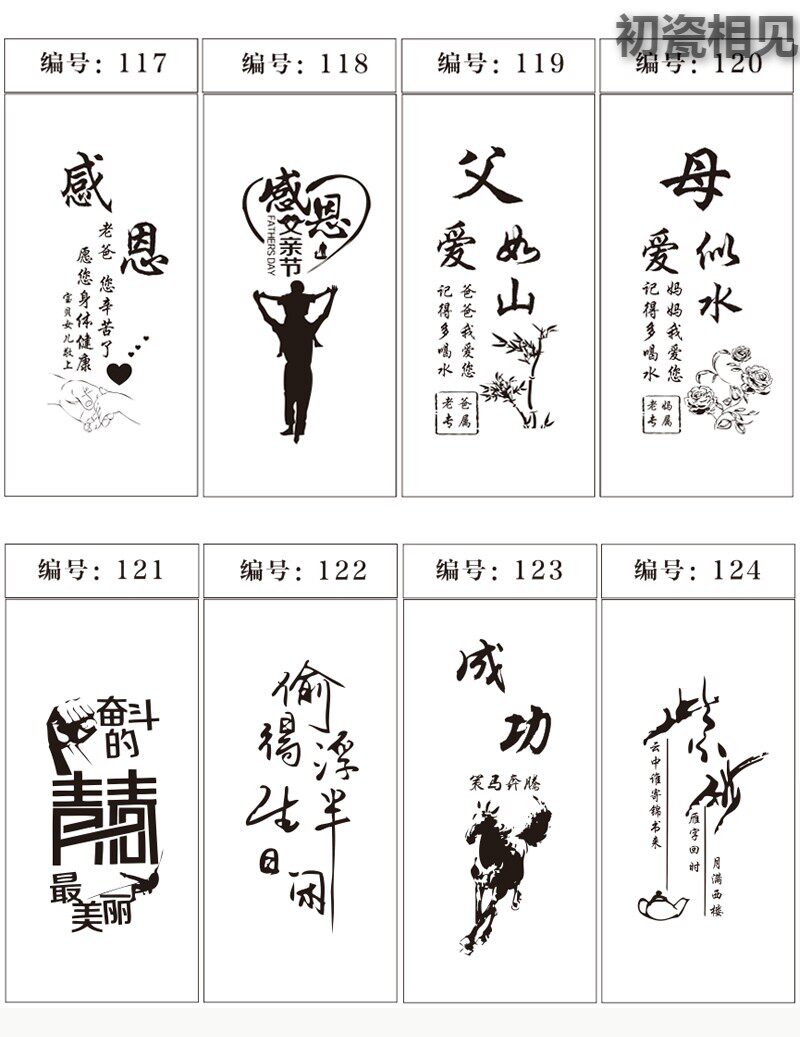 初瓷相见
编号：117
感
恩
老爸 您辛苦了
愿您身体健康
宝贝女儿敬上
编号：118
感恩
父亲节
FATHER'S DAY
编号：119
父
爱如山
爸爸我爱您
记得多喝水
老爸
专属
编号：120
母
爱似水
妈妈我爱您
记得多喝水
老妈
专属
编号：121
奋斗
的
青春
最
美丽
编号：122
偷得
浮生
半日
闲
编号：123
成
功
策马奔腾
编号：124
紫砂
云中谁寄锦书来
雁字回时
月满西楼